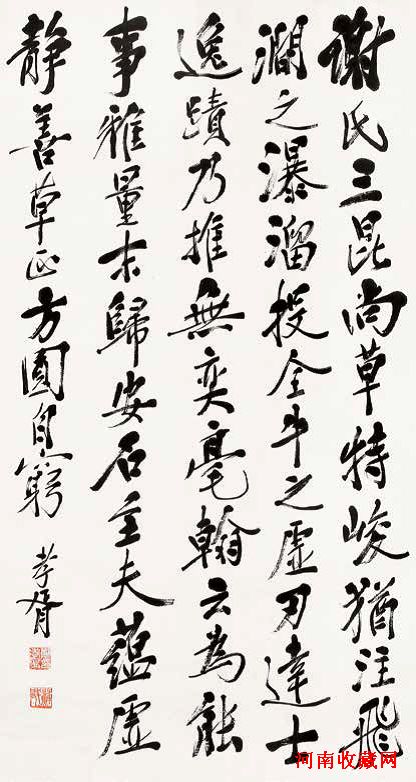 謝氏三昆尚草特峻猶注飛
澗之瀑溜投全牛之虛刃達士
逸蹟乃推無奕毫翰云為能
事雅量末歸安石主夫蘊虛
靜善草正方圓自窮 孝胥
河南收藏网